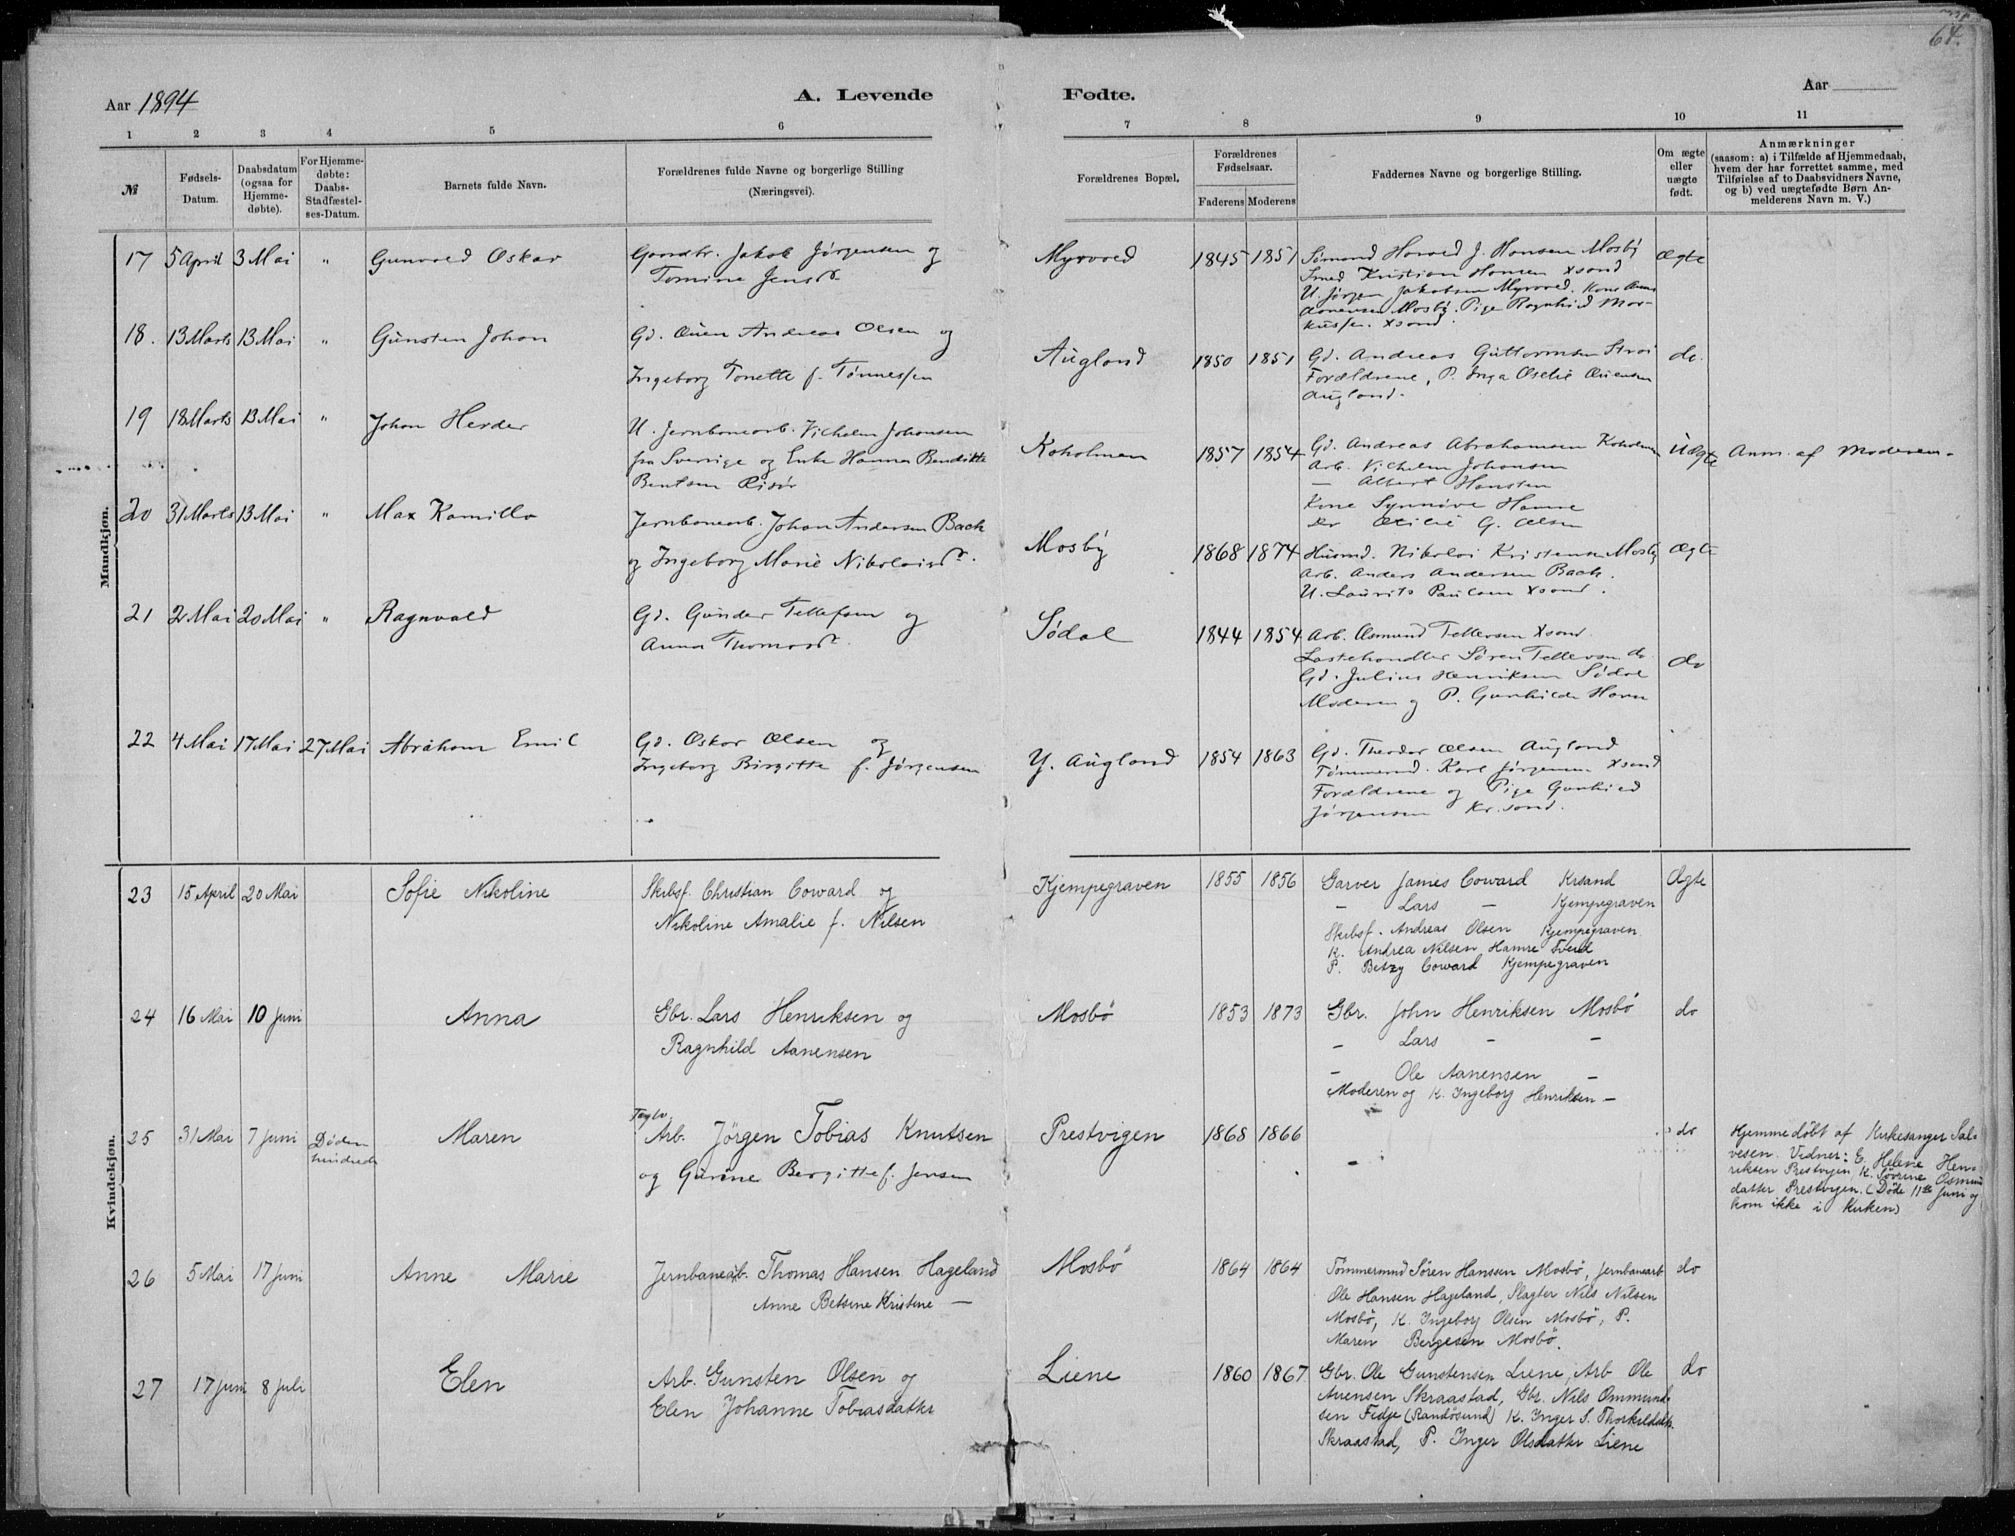 64.
Aar 1894
A. Levende
Fødte.
Aar
1 2 3 4 5 6 7 8 9 10 11
№
Fødsels-
Datum.
Daabsdatum
(ogsaa for
Hjemme-
døbte).
For Hjemme-
døbte:
Daabs-
Stadfæstel-
ses-Datum.
Barnets fulde Navn.
Forældrenes fulde Navne og borgerlige Stilling
(Næringsvei).
Forældrenes Bopæl.
Forældrenes
Fødselsaar.
Faderens Moderens
Faddernes Navne og borgerlige Stilling.
Om ægte
eller
uægte
født.
Anmærkninger
(saasom: a) i Tilfælde af Hjemmedaab,
hvem der har forrettet samme, med
Tilføielse af to Daabsvidners Navne,
og b) ved uægtefødte Børn An-
melderens Navn m. V.)
Mandkjøn.
17 5 April 3 Mai " Gunvold Oskar
Gaardbr. Jakob Jørgensen og
Tomine Jensd.
Myrvold 1845 1851
Hansen Mosby
Smed Kristian Hansen Xsand
U. Jørgen Jakobsen Myrvold. Kone
Mosby. Pige Ragnhild Mar-
kussen. Xsand.
Ægte
18. 13 Marts 13 Mai " Gunsten Johan
Gd. Ouen Andreas Olsen og
Ingeborg Tonette f. Tønnessen
Augland 1850 1851
Gd. Andreas Guttormsen Strai
Forældrene, P. Inga Oselie Ouensen
Augland.
do.
19 18 Marts 13 Mai " Johan Herder
U. Jernbanearb. Vilhelm Johansen
fra Sverrige og Enke Hanna Bendikte
Bentsen Risør
Koholmen 1857 1854
Gd. Andreas Abrahamsen Koholmen
Arb. Vilhelm Johansen
— Albert Hansten
Kone Synnøve Hamre
do G. Olsen
Uægte
Anm. af Moderen.
20 31 Marts 13 Mai " Max Kamillo
Jernbanearb. Johan Andersen Bach
og Ingeborg Marie Nikolaisd.
Mosby 1868 1874
Husmd. Nikolai Kristensen Mosby
Arb. Anders Andersen Bach.
U. Laurits Paulsen Xsand.
Ægte
21 2 Mai 20 Mai " Ragnvald
Gd. Gunder Tellefsen og
Anna Thomasd.
Södal 1844 1854
Arb. Osmund Tellefsen Xsand.
Lastehandler Sören Tellefsen do.
Gd. Julius Henriksen Södal
Moderen og P. Gunhilde Havn
do
22 4 Mai 17 Mai 27 Mai Abraham Emil
Gd. Oskar Olsen og
Ingeborg Birgitte f. Jørgensen
Y. Augland 1854 1863
Gd. Theodor Olsen Augland
Tømmermd. Karl Jørgensen Xsand
Forældrene og Pige Gunhild
Jørgensen Kr.sand.
Kvindekjøn.
23 15 April 20 Mai Sofie Nikoline
Skibsf. Christian Coward og
Nikoline Amalie f. Nilsen
Kjempegraven 1855 1856
Garver James Coward Krsand
– Lars – Kjempegraven
Skibsf. Andreas Olsen Kjempegraven
K. Andrea Nilsen Hamre Tveid
P. Betzy Coward Kjempegraven
Ægte
24 16 Mai 10 Juni Anna
Gbr. Lars Henriksen og
Ragnhild Aanensen
Mosbö 1853 1873
Gbr. John Henriksen Mosbö
– Lars – –
– Ole Aanensen –
Moderen og K. Ingeborg Henriksen –
do
25 31 Mai 7 Juni Döden
hindrede
Maren
Arb. Jörgen Tobias Knutsen
og Gurine Bergitte f. Jensen
Prestvigen 1868 1866
do
Hjemmedöbt af Kirkesanger Sal-
vesen. Vidner: E. Helene Hen-
riksen Prestvigen, K. Sörine Osmun
datter Prestvigen. (Döde 11te Juni og
kom ikke i Kirken)
26 5 Mai 17 Juni Anne Marie
Jernbanearb. Thomas Hansen Hageland
Anne Betsine Kristine —
Mosbö 1864 1864
Tömmermnd Sören Hanssen Mosbö, Jernbanearb
Ole Hansen Hageland, Slagter Nils Nilsen
Mosbö, K. Ingeborg Olsen Mosbö, P.
Maren Bergesen Mosbö.
do
27 17 Juni 8 Juli Elen
Arb. Gunsten Olsen og
Elen Johanne Tobiasdatter
Liene 1860 1867
Gbr. Ole Gunstensen Liene, Arb Ole
Auensen Skraastad, Gbr. Nils Ommund-
sen Fidje (Randösund) K. Inger S. Thorkildsdt.
Skraastad, P. Inger Olsdatter Liene
do